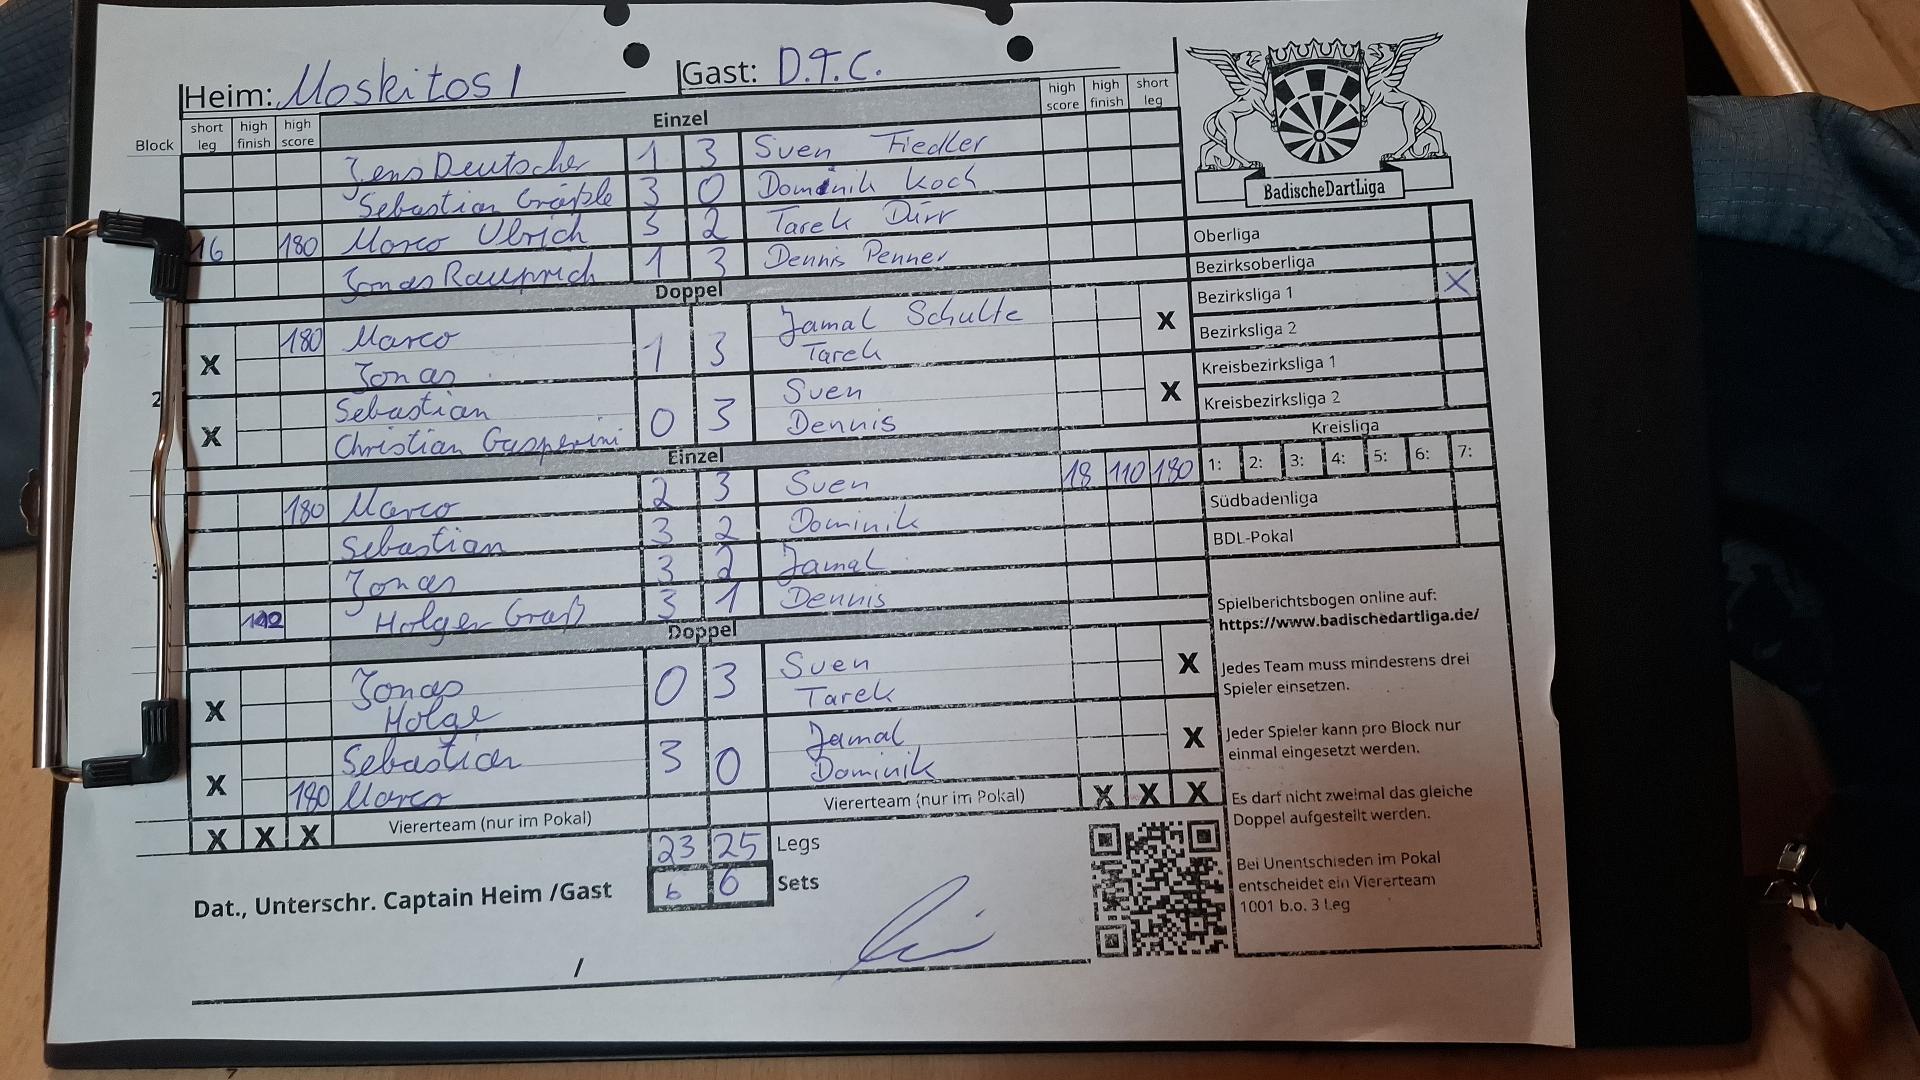 Heim: Moskitos 1 Gast: D.T.C.
Block short leg high finish high score Einzel high score high finish short leg
Jens Deutscher 1 3 Sven Fiedler
Sebastian Gräßle 3 0 Dominik Koch
16 180 Marco Ulrich 3 2 Tarek Dürr
Jonas Rauprich 1 3 Dennis Penner
Doppel
X 180 Marco 1 3 Jamal Schulte X
Jonas Tarek
2 X Sebastian 0 3 Sven X
Christian Gasperini Dennis
Einzel
180 Marco 2 3 Sven 18 110 180
Sebastian 3 2 Dominik
Jonas 3 2 Jamal
Holger Graß 3 1 Dennis
Doppel
X Jonas 0 3 Sven X
Holge Tarek
X Sebastian 3 0 Jamal X
180 Marco Dominik
X X X Viererteam (nur im Pokal) Viererteam (nur im Pokal) X X X
23 25 Legs
6 6 Sets
Dat., Unterschr. Captain Heim /Gast
/
BadischeDartLiga
Oberliga
Bezirksoberliga
Bezirksliga 1 X
Bezirksliga 2
Kreisbezirksliga 1
Kreisbezirksliga 2
Kreisliga
1: 2: 3: 4: 5: 6: 7:
Südbadenliga
BDL-Pokal
Spielberichtsbogen online auf:
https://www.badischedartliga.de/
Jedes Team muss mindestens drei
Spieler einsetzen.
Jeder Spieler kann pro Block nur
einmal eingesetzt werden.
Es darf nicht zweimal das gleiche
Doppel aufgestellt werden.
Bei Unentschieden im Pokal
entscheidet ein Viererteam
1001 b.o. 3 Leg